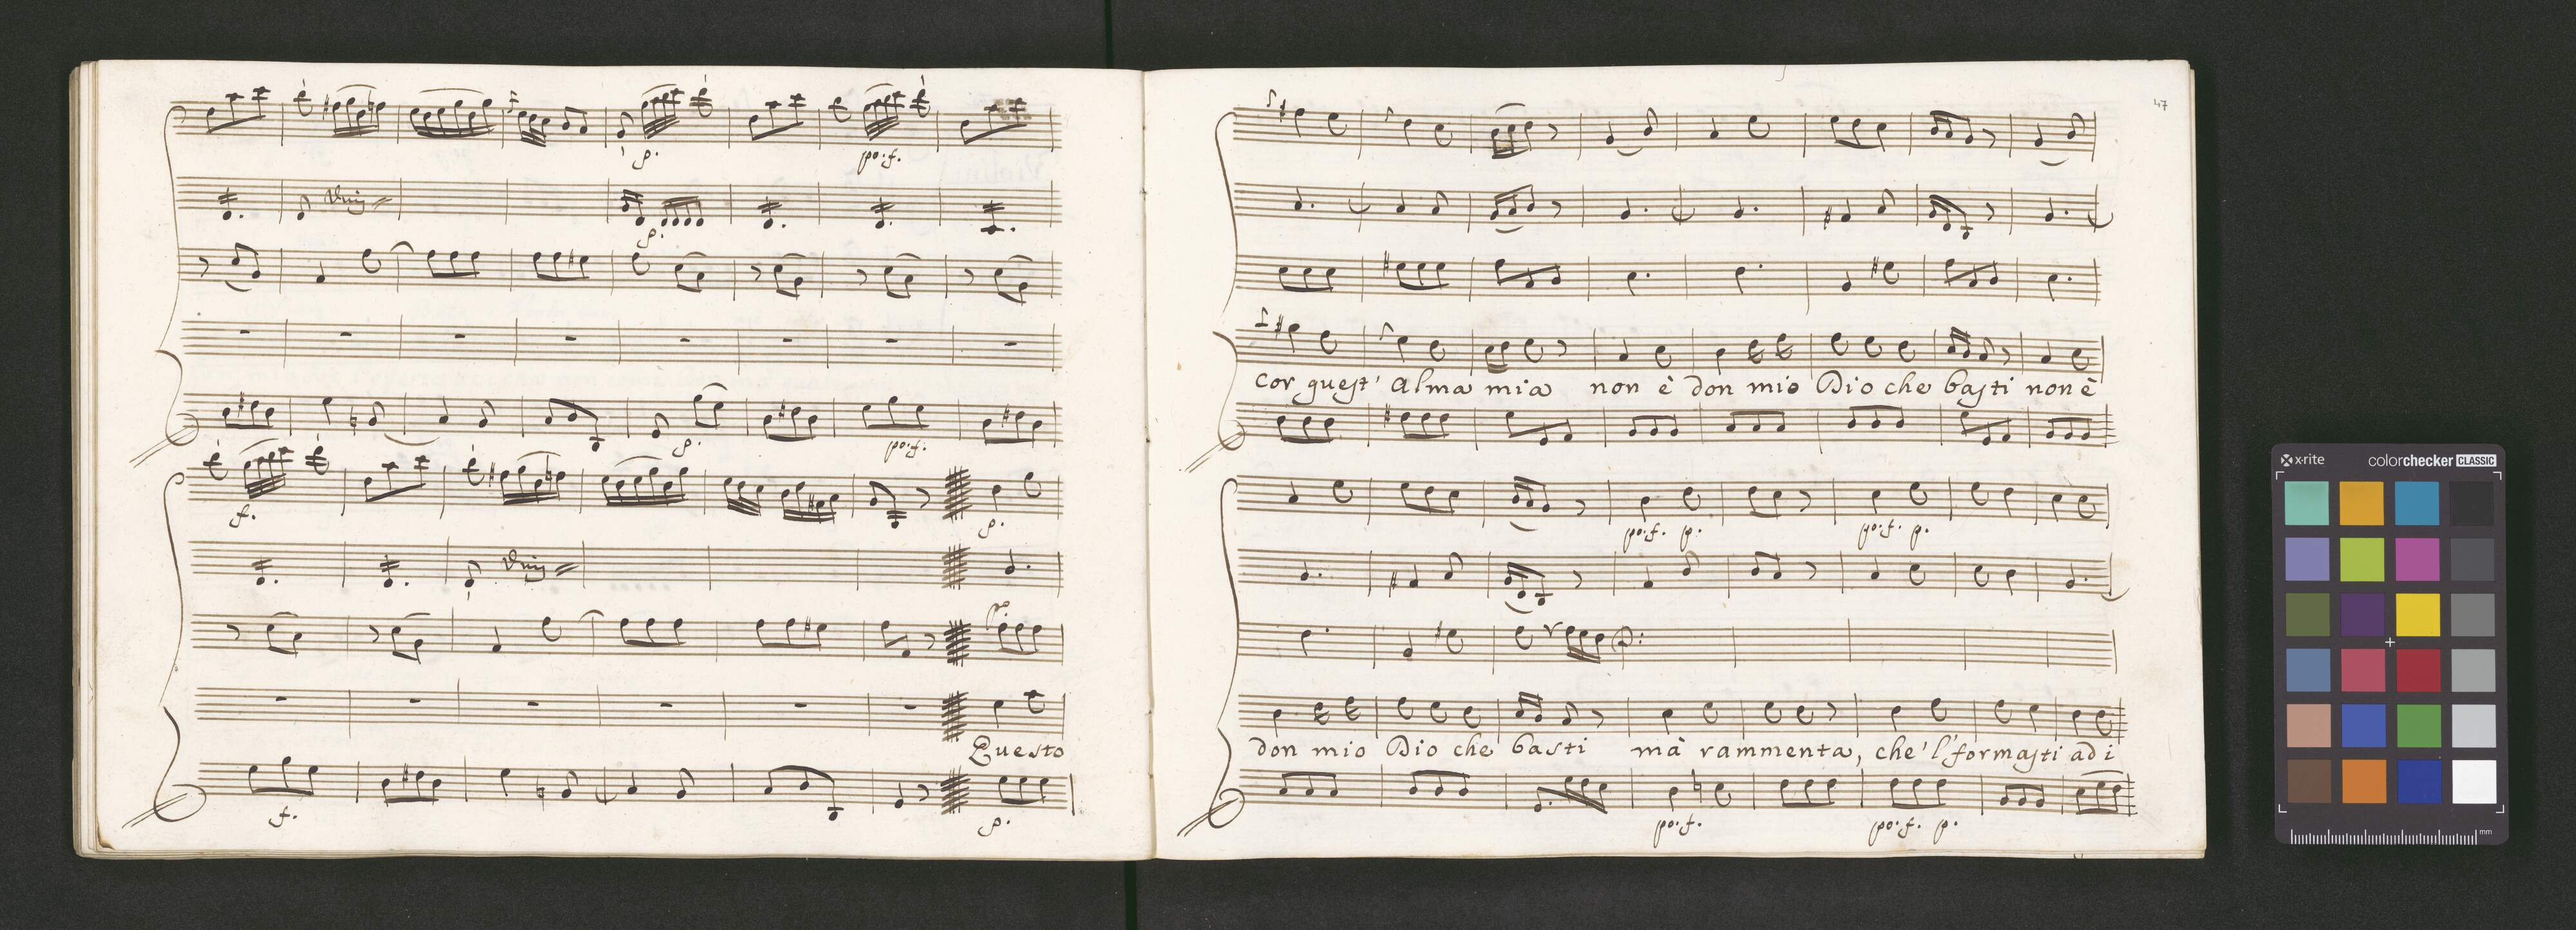 p. po: f.
Viij
p.
p. po: f.
f. p.
Viij
po
Questo
f. p.
47
cor quest' alma mia non è don mio Dio che basti non è
po: f. p. po: f. p.
don mio Dio che basti mà rammenta, che'l' formasti ad i
po: f. po: f. p.
x-rite colorchecker CLASSIC
mm